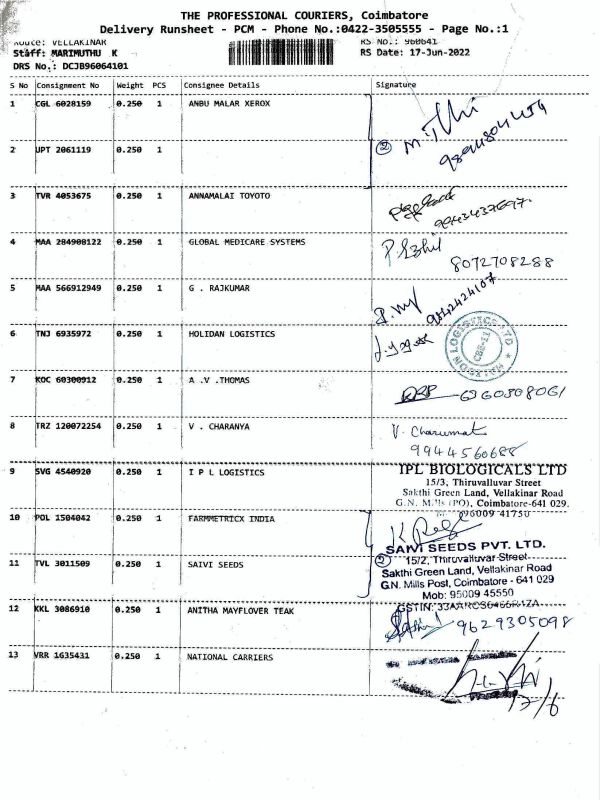 THE PROFESSIONAL COURIERS, Coimbatore
Delivery Runsheet - PCM - Phone No.:0422-3505555 - Page No.:1
Route: VELLAKINAR RS No.: 960641
Staff: MARIMUTHU K RS Date: 17-Jun-2022
DRS No.: DCJB96064101
S No Consignment No Weight PCS Consignee Details Signature
1 CGL 6028159 0.250 1 ANBU MALAR XEROX
2 UPT 2061119 0.250 1
3 TVR 4053675 0.250 1 ANNAMALAI TOYOTO
4 MAA 284908122 0.250 1 GLOBAL MEDICARE SYSTEMS
8072708288
5 MAA 566912949 0.250 1 G . RAJKUMAR
9842424107
6 TNJ 6935972 0.250 1 HOLIDAN LOGISTICS
7 KOC 60300912 0.250 1 A .V .THOMAS
6360508061
8 TRZ 120072254 0.250 1 V . CHARANYA
9944560688
9 SVG 4540920 0.250 1 I P L LOGISTICS
IPL BIOLOGICALS LTD
15/3, Thiruvalluvar Street
Sakthi Green Land, Vellakinar Road
G.N. Mills (PO), Coimbatore-641 029.
96009 41750
10 POL 1504042 0.250 1 FARMMETRICX INDIA
11 TVL 3011509 0.250 1 SAIVI SEEDS
SAIVI SEEDS PVT. LTD.
15/2, Thiruvalluvar Street
Sakthi Green Land, Vellakinar Road
G.N. Mills Post, Coimbatore - 641 029
Mob: 95009 45550
12 KKL 3086910 0.250 1 ANITHA MAYFLOVER TEAK
9629305098
13 VRR 1635431 0.250 1 NATIONAL CARRIERS
17/6